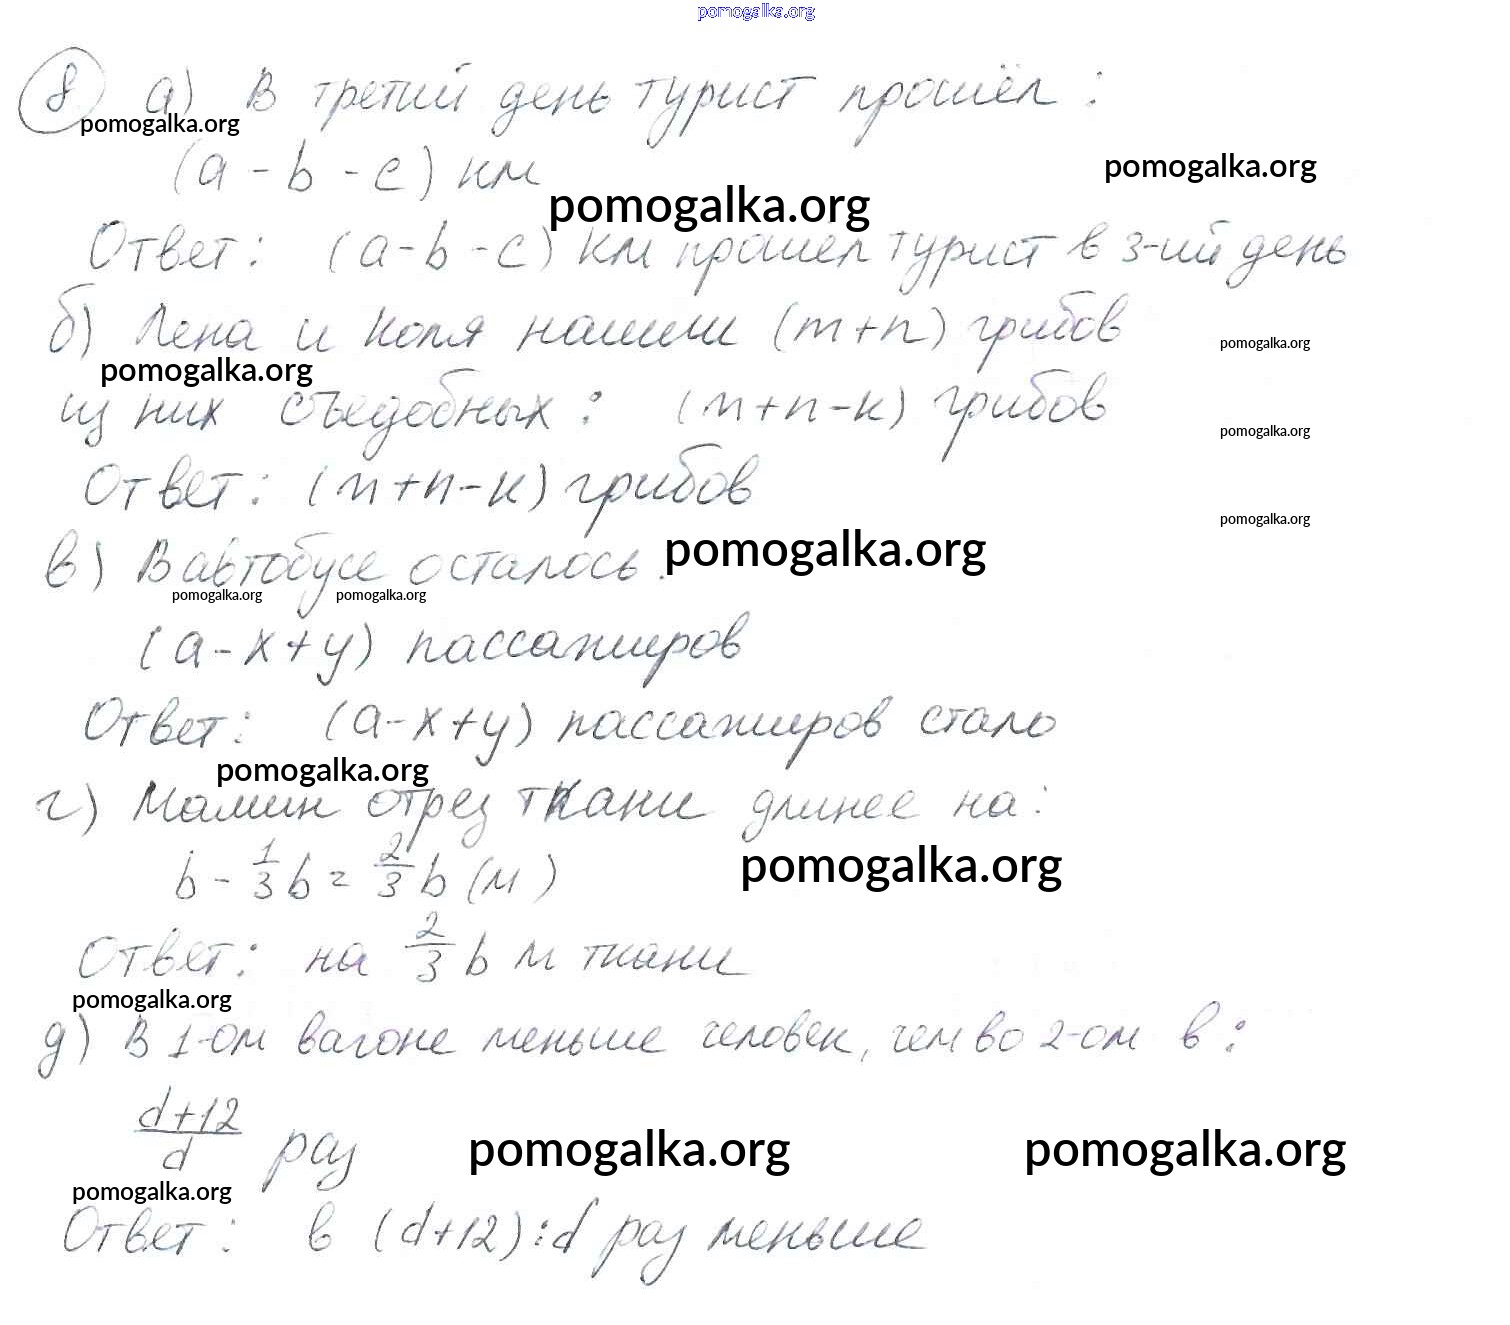 pomogalka.org
8 а) В третий день турист прошёл:
pomogalka.org
(a - b - c) км
pomogalka.org
pomogalka.org
Ответ: (a - b - c) км прошел турист в 3-ий день
б) Лена и Коля нашли (m + n) грибов
pomogalka.org
pomogalka.org
из них съедобных: (m + n - к) грибов
pomogalka.org
Ответ: (m + n - к) грибов
pomogalka.org
в) В автобусе осталось:
pomogalka.org
pomogalka.org pomogalka.org
(a - x + y) пассажиров
Ответ: (a - x + y) пассажиров стало
pomogalka.org
г) Мамин отрез ткани длинее на:
b - 1/3 b = 2/3 b (м)
pomogalka.org
Ответ: на 2/3 b м ткани
pomogalka.org
д) В 1-ом вагоне меньше человек, чем во 2-ом в:
d+12/d раз
pomogalka.org pomogalka.org
pomogalka.org
Ответ: в (d+12):d раз меньше